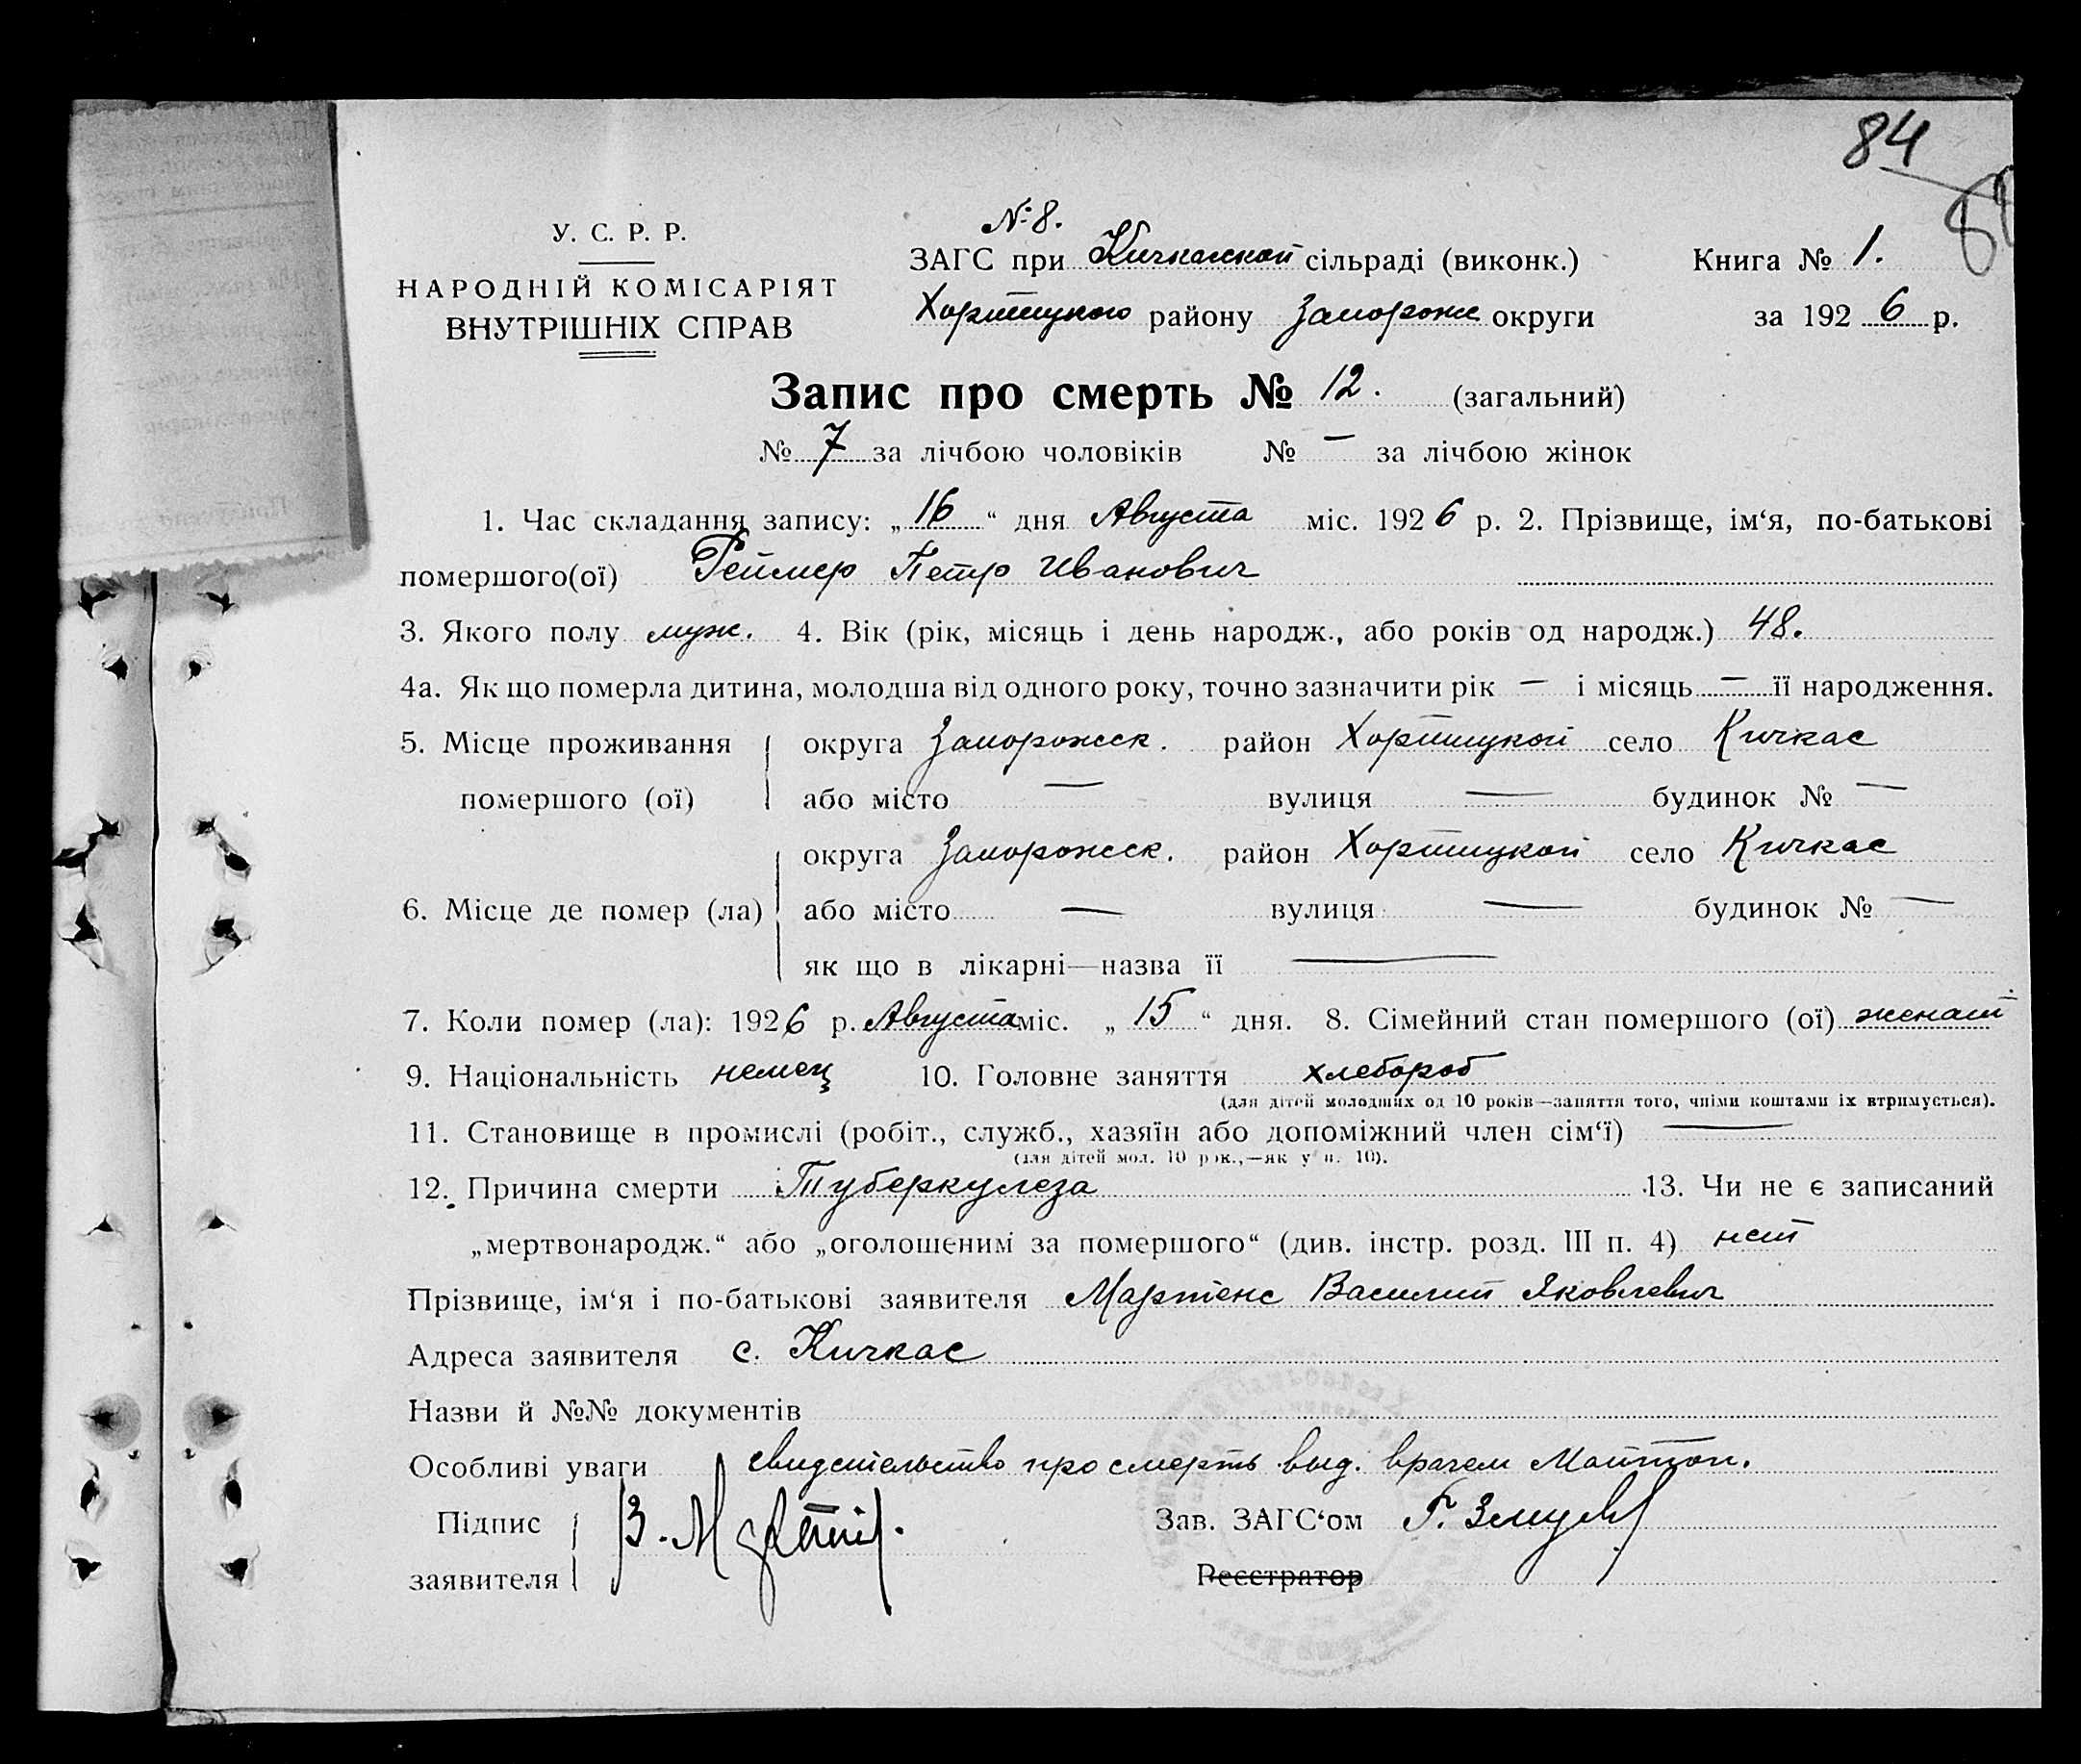 84
У. С. Р. Р.
НАРОДНІЙ КОМІСАРІЯТ
ВНУТРІШНІХ СПРАВ
№ 8.
ЗАГС при Кичкасской сільраді (виконк.) Книга № 1.
Хортицкого району Запорожс округи за 1926 р.
Запис про смерть № 12. (загальний)
№ 7 за лічбою чоловіків № — за лічбою жінок
1. Час складання запису: „16“ дня Августа міс. 1926 р. 2. Прізвище, ім‘я, по-батькові
помершого(ої) Реймер Петр Иванович
3. Якого полу муж. 4. Вік (рік, місяць і день народж., або років од народж.) 48.
4а. Як що померла дитина, молодша від одного року, точно зазначити рік — і місяць — її народження.
5. Місце проживання округа Запорожск. район Хортицкой село Кичкас
помершого (ої) або місто — вулиця — будинок № —
округа Запорожск. район Хортицкой село Кичкас
6. Місце де помер (ла) або місто — вулиця — будинок № —
як що в лікарні—назва її —
7. Коли помер (ла): 1926 р. Августа міс. „15“ дня. 8. Сімейний стан помершого (ої) женат
9. Національність немец 10. Головне заняття хлебороб
(для дітей молодших од 10 років—заняття того, чиїми коштами їх втримується).
11. Становище в промислі (робіт., служб., хазяїн або допоміжний член сім‘ї) —
(для дітей мол. 10 рок.,—як у п. 10).
12. Причина смерти Туберкулеза 13. Чи не є записаний
„мертвонародж.“ або „оголошеним за помершого“ (див. інстр. розд. III п. 4) нет
Прізвище, ім‘я і по-батькові заявителя Мартенс Василий Яковлевич
Адреса заявителя с. Кичкас
Назви й №№ документів
Особливі уваги свидетельство про смерть выд. врачем
Підпис В. М Зав. ЗАГС‘ом Г.
заявителя Реєстратор